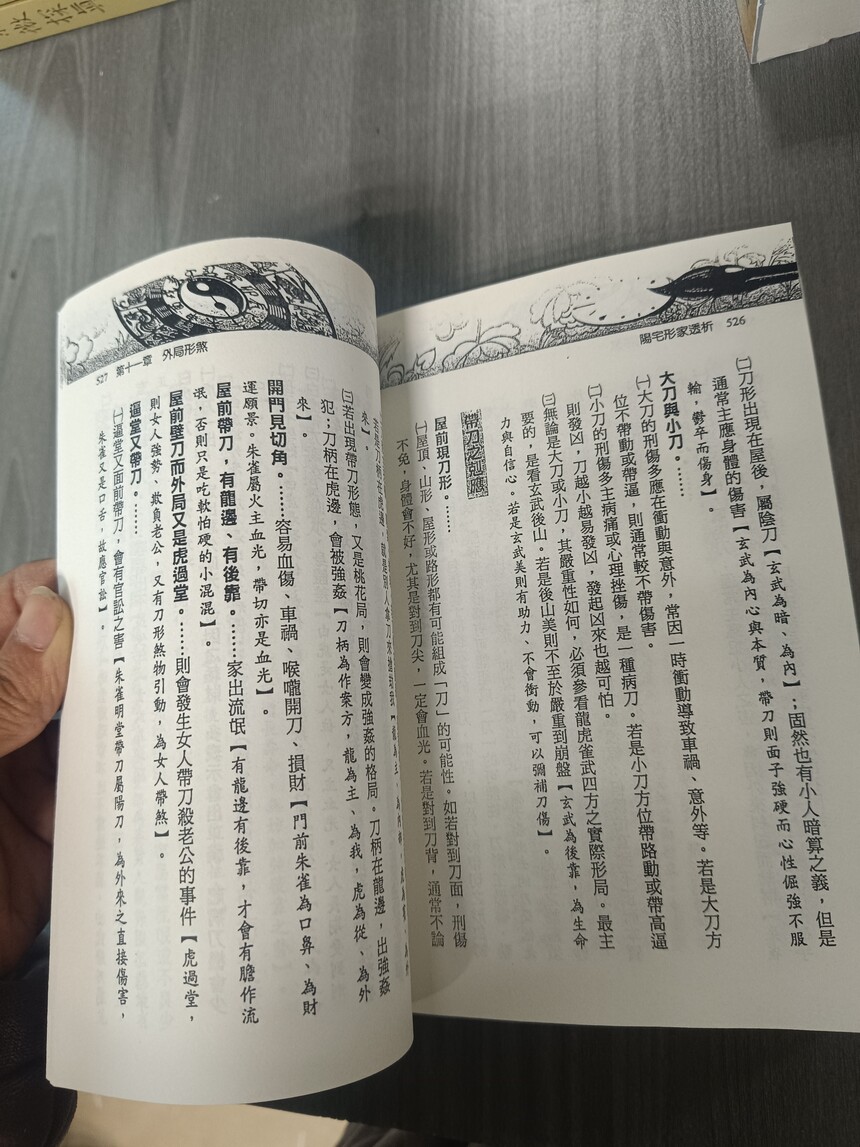 陽宅形家透析 526
㈢刀形出現在屋後，屬陰刀【玄武為暗、為內】；固然也有小人暗算之義，但是
通常主應身體的傷害【玄武為內心與本質，帶刀則面子強硬而心性倔強不服
輸，鬱卒而傷身】。
大刀與小刀。……
㈠大刀的刑傷多應在衝動與意外，常因一時衝動導致車禍、意外等。若是大刀方
位不帶動或帶逼，則通常較不帶傷害。
㈡小刀的刑傷多主病痛或心理挫傷，是一種病刀。若是小刀方位帶路動或帶高逼
則發凶，刀越小越易發凶，發起凶來也越可怕。
㈢無論是大刀或小刀，其嚴重性如何，必須參看龍虎雀武四方之實際形局。最主
要的，是看玄武後山。若是後山美則不至於嚴重到崩盤【玄武為後靠，為生命
力與自信心。若是玄武美則有助力、不會衝動，可以彌補刀傷】。
帶刀之剋應
屋前現刀形。……
㈠屋頂、山形、屋形或路形都有可能組成「刀」的可能性。如若對到刀面，刑傷
不免，身體會不好，尤其是對到刀尖，一定會血光。若是對到刀背，通常不論
527 第十一章 外局形煞
來】。
㈢若出現帶刀形態，又是桃花局，則會變成強姦的格局。刀柄在龍邊，出強姦
犯；刀柄在虎邊，會被強姦【刀柄為作案方，龍為主、為我，虎為從、為外
來】。
開門見切角。……容易血傷、車禍、喉嚨開刀、損財【門前朱雀為口鼻、為財
運願景。朱雀屬火主血光，帶切亦是血光】。
屋前帶刀，有龍邊、有後靠。……家出流氓【有龍邊有後靠，才會有膽作流
氓，否則只是吃軟怕硬的小混混】。
屋前壁刀而外局又是虎過堂。……則會發生女人帶刀殺老公的事件【虎過堂，
則女人強勢、欺負老公，又有刀形煞物引動，為女人帶煞】。
逼堂又帶刀。……
㈠逼堂又面前帶刀，會有官訟之害【朱雀明堂帶刀屬陽刀，為外來之直接傷害，
朱雀又是口舌，故應官訟】。